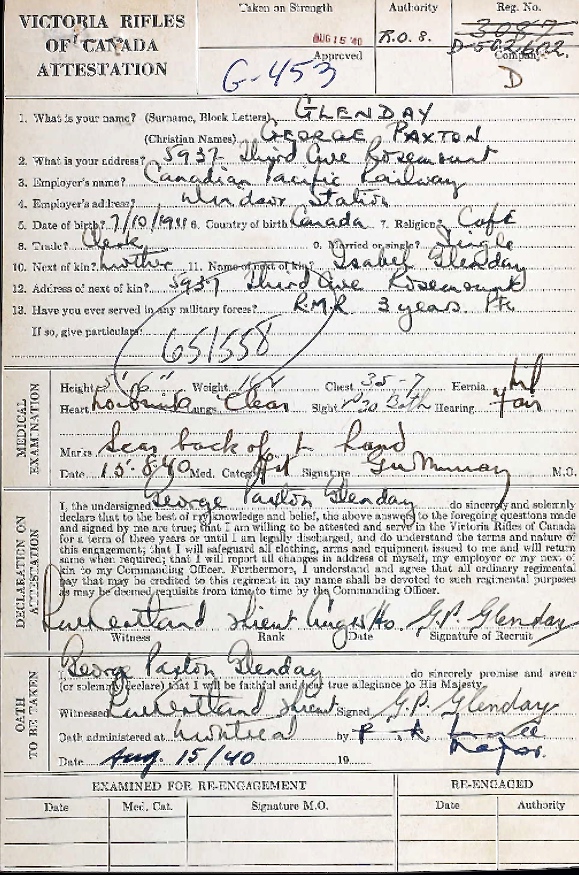 VICTORIA RIFLES
OF CANADA
ATTESTATION
Taken on Strength
AUG 15 '40
Approved
G-453
Authority
R.O. 8.
Reg. No.
3087
D-502602.
Company
D
1. What is your name? (Surname, Block Letters) GLENDAY
(Christian Names) GEORGE PAXTON
2. What is your address? 5937 Third Ave Rosemount
3. Employer's name? Canadian Pacific Railway
4. Employer's address? Windsor Station
5. Date of birth? 7/10/1911 6. Country of birth Canada 7. Religion? CofE
8. Trade? Clerk 9. Married or single? Single
10. Next of kin? Mother 11. Name of next of kin? Isabel Glenday
12. Address of next of kin? 5937 Third Ave Rosemount
13. Have you ever served in any military forces? R.M.R 3 years. Pte
If so, give particulars:
651558
MEDICAL EXAMINATION
Height 5' 6" Weight Chest 35-7 Hernia Nil
Heart Lungs Clear Sight Both Hearing Fair
Marks Scar back of L hand
Date 15-8-40 Med. Category Signature M.O.
DECLARATION ON ATTESTATION
I, the undersigned George Paxton Glenday do sincerely and solemnly
declare that to the best of my knowledge and belief, the above answers to the foregoing questions made
and signed by me are true; that I am willing to be attested and serve in the Victoria Rifles of Canada
for a term of three years or until I am legally discharged, and do understand the terms and nature of
this engagement; that I will safeguard all clothing, arms and equipment issued to me and will return
same when required; that I will report all changes in address of myself, my employer or my next of
kin to my Commanding Officer. Furthermore, I understand and agree that all ordinary regimental
pay that may be credited to this regiment in my name shall be devoted to such regimental purposes
as may be deemed requisite from time to time by the Commanding Officer.
Lieut Aug 15/40. G.P. Glenday
Witness Rank Date Signature of Recruit
OATH TO BE TAKEN
George Paxton Glenday do sincerely promise and swear
(or solemnly declare) that I will be faithful and bear true allegiance to His Majesty.
Witnessed Lieut Signed G.P. Glenday
Oath administered at Montreal by
Major.
Date Aug. 15/40 19
EXAMINED FOR RE-ENGAGEMENT
RE-ENGAGED
Date Med. Cat. Signature M.O. Date Authority